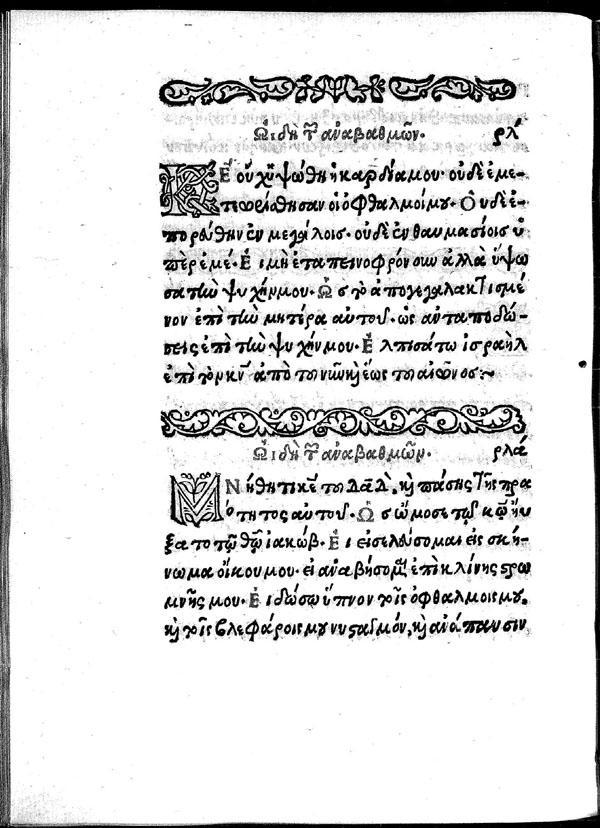 Ὠιδὴ τῶν ἀναβαθμῶν. ρλ
ΚΕ οὐχ ὑψώθη ἡ καρδία μου· οὐδὲ ἐμε-
τεωρίσθησαν οἱ ὀφθαλμοί μου· Οὐδὲ ἐ-
πορεύθην ἐν μεγάλοις· οὐδὲ ἐν θαυμασίοις ὑ
πὲρ ἐμέ· Εἰ μὴ ἐταπεινοφρόνουν ἀλλὰ ὕψω
σα τὴν ψυχήν μου· Ὡς τὸ ἀπογεγαλακτισμέ
νον ἐπὶ τὴν μητέρα αὐτοῦ· ὡς ἀνταποδώ-
σεις ἐπὶ τὴν ψυχήν μου· Ἐλπισάτω ἰσραὴλ
ἐπὶ τὸν κν̅ ἀπὸ τοῦ νῦν καὶ ἕως τοῦ αἰῶνος:~
Ὠιδὴ τῶν ἀναβαθμῶν. ρλά
ΜΝήθητι κε̅ τοῦ Δα̅δ̀, καὶ πάσης τῆς πρα
ότητος αὐτοῦ· Ὡς ὤμοσε τῷ κω̅ ηὔ
ξατο τῷ θω̅ ἰακώβ· Εἰ εἰσελεύσομαι εἰς σκή-
νωμα οἴκου μου· εἰ ἀναβήσομαι ἐπὶ κλίνης στρω
μνῆς μου· Εἰ δώσω ὕπνον τοῖς ὀφθαλμοῖς μου,
καὶ τοῖς βλεφάροις μου νυσταγμόν, καὶ ἀνάπαυσιν